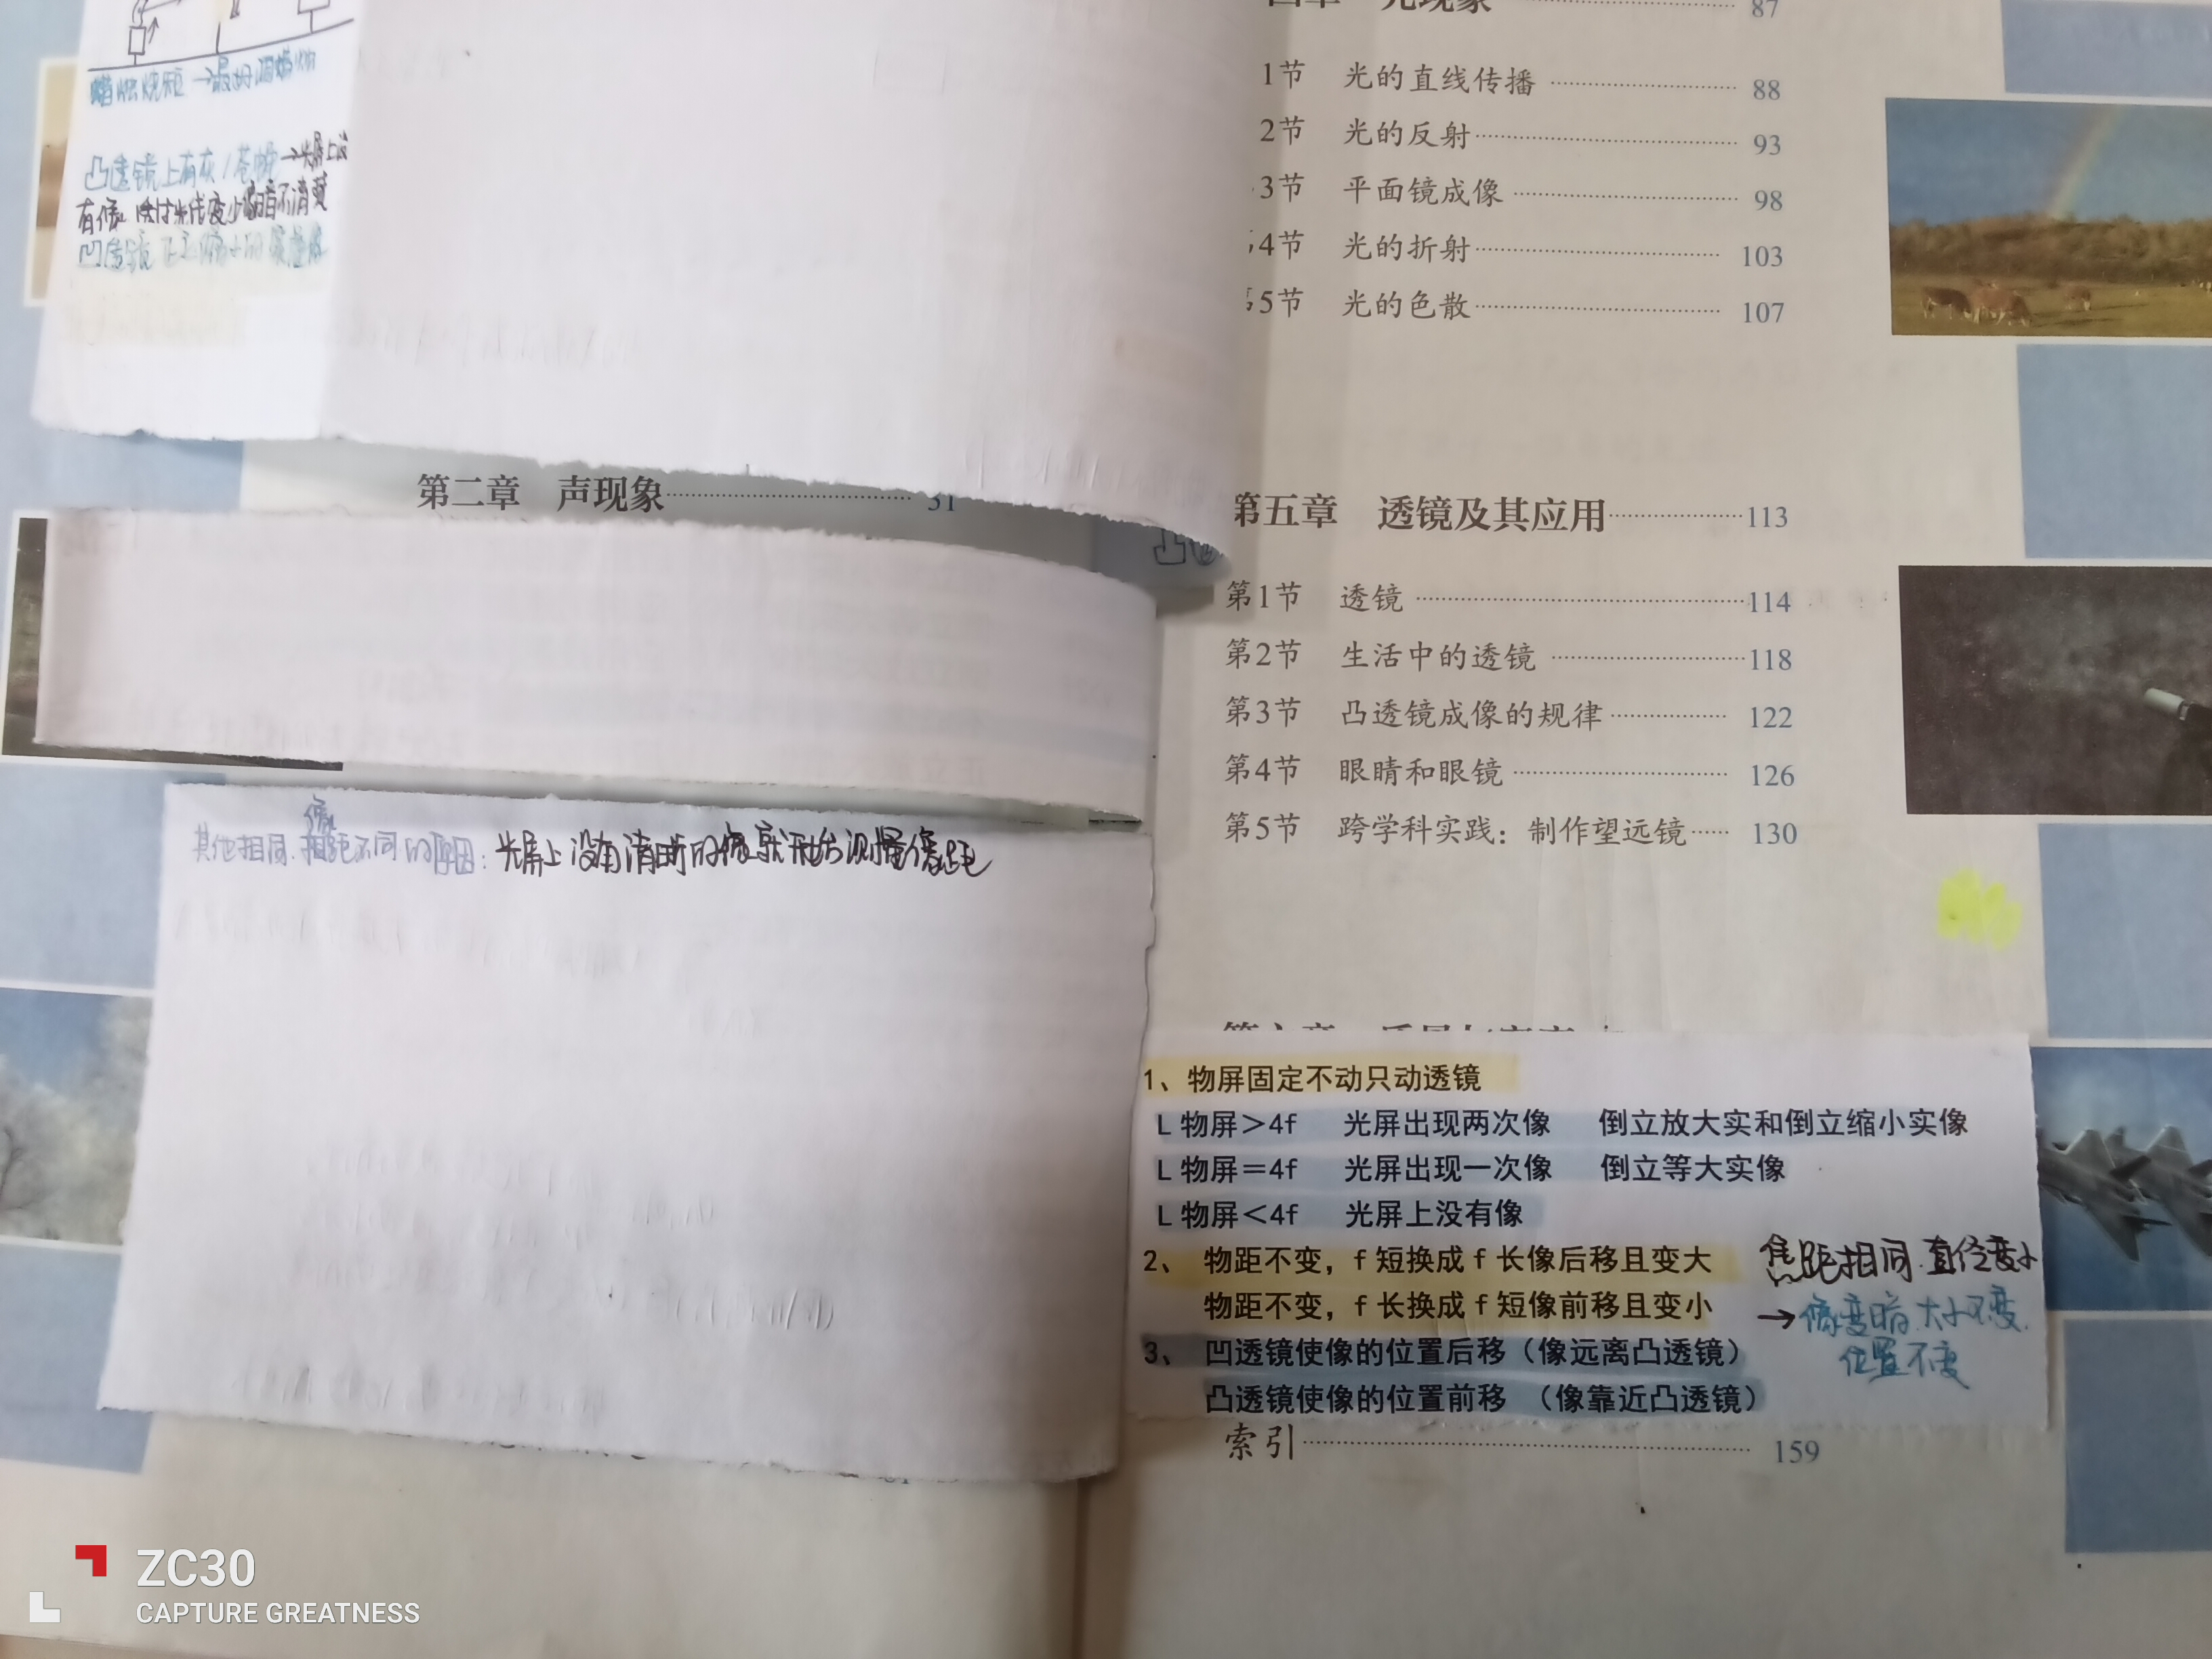 蜡烛烧短→最好调蜡烛
凸透镜上有灰/苍蝇→光屏上没
有像,
凹透镜 正立缩小的虚像
第二章 声现象 31
其他相同.像距不同的原因:光屏上没有清晰的像就开始测量像距
87
1节 光的直线传播 88
2节 光的反射 93
3节 平面镜成像 98
4节 光的折射 103
5节 光的色散 107
第五章 透镜及其应用 113
第1节 透镜 114
第2节 生活中的透镜 118
第3节 凸透镜成像的规律 122
第4节 眼睛和眼镜 126
第5节 跨学科实践:制作望远镜 130
1、物屏固定不动只动透镜
L 物屏>4f 光屏出现两次像 倒立放大实和倒立缩小实像
L 物屏=4f 光屏出现一次像 倒立等大实像
L 物屏<4f 光屏上没有像
2、 物距不变,f 短换成 f 长像后移且变大
物距不变,f 长换成 f 短像前移且变小
焦距相同.直径变小
→像变暗.大小不变.
位置不变
3、 凹透镜使像的位置后移(像远离凸透镜)
凸透镜使像的位置前移 (像靠近凸透镜)
索引 159
ZC30
CAPTURE GREATNESS